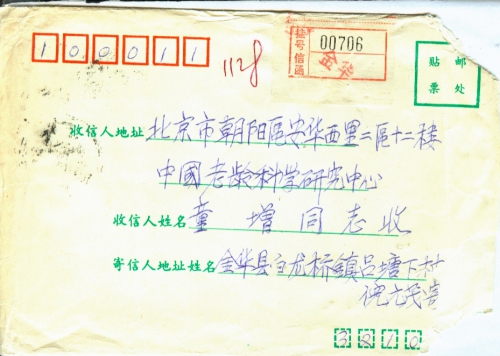 100011
1128
挂号信函
00706
金华
贴邮
票处
收信人地址 北京市朝阳區安华西里二區十二楼
中國老龄科学研究中心
收信人姓名 童增同志收
寄信人地址姓名 金华县白龙桥镇吕塘下村
倪
寄
3210